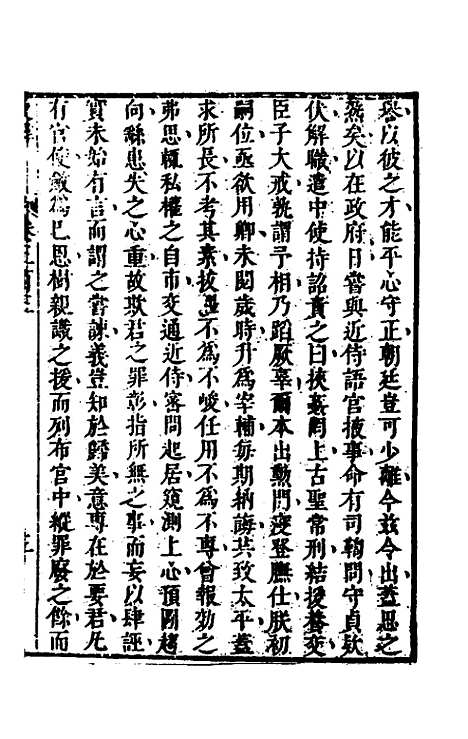 譽以彼之才能平心守正朝廷豈可少離今茲令出蓋思之
熟矣以在政府日嘗與近侍語宮掖事命有司鞫問守貞欵
伏解職遣中使持詔責之曰挾姦罔上古聖常刑結援養交
臣子大戒孰謂予相乃蹈厥辜爾本出勳門浸登膴仕朕初
嗣位亟欲用卿未閱歲時升為宰輔每期納誨共致太平蓋
求所長不考其素拔擢不為不峻任用不為不專曾報効之
弗思輒私權之自市交通近侍密問起居窺測上心預圖趨
向繇患失之心重故欺君之罪彰指所無之事而妄以肆誣
實未始有言而謂之嘗諫義豈知於歸美意專在於要君凡
有官使斂為已恩樹親識之援而列布宮中縱罪廢之餘而